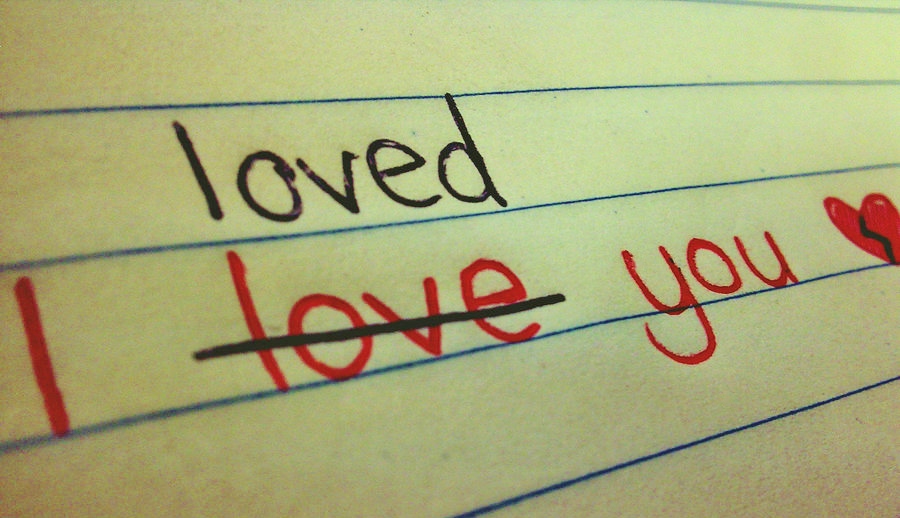 loved
I love you